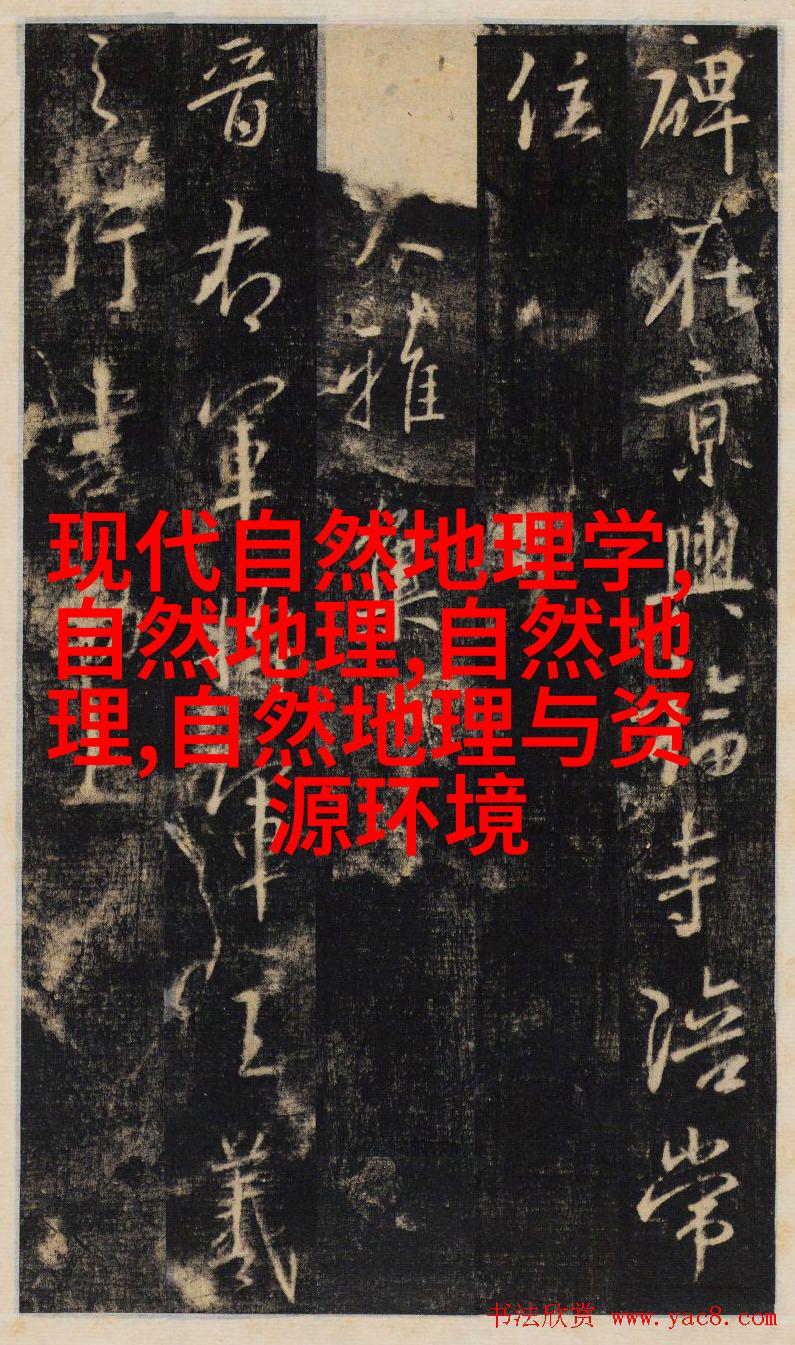 碑在京興福寺陪常
住
大雅集
晋右軍将軍王羲
之行書
现代自然地理学,
自然地理,自然地
理,自然地理与资
源环境
书法欣赏 www.yac8.com